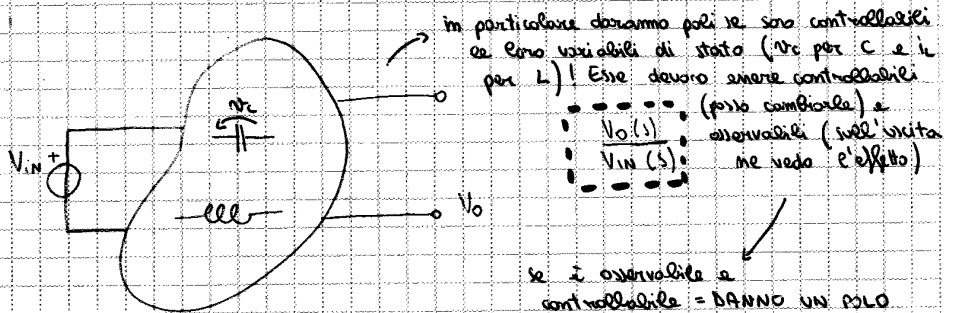 in particolare daranno poli se sono controllabili
le loro variabili di stato (vc per C e iL
per L)! Esse devono essere controllabili
(posso cambiarle) e
osservabili (sull'uscita
ne vedo l'effetto)
Vo(s)
VIN(s)
vc
VIN +
Vo
se è osservabile e
controllabile = DANNO UN POLO